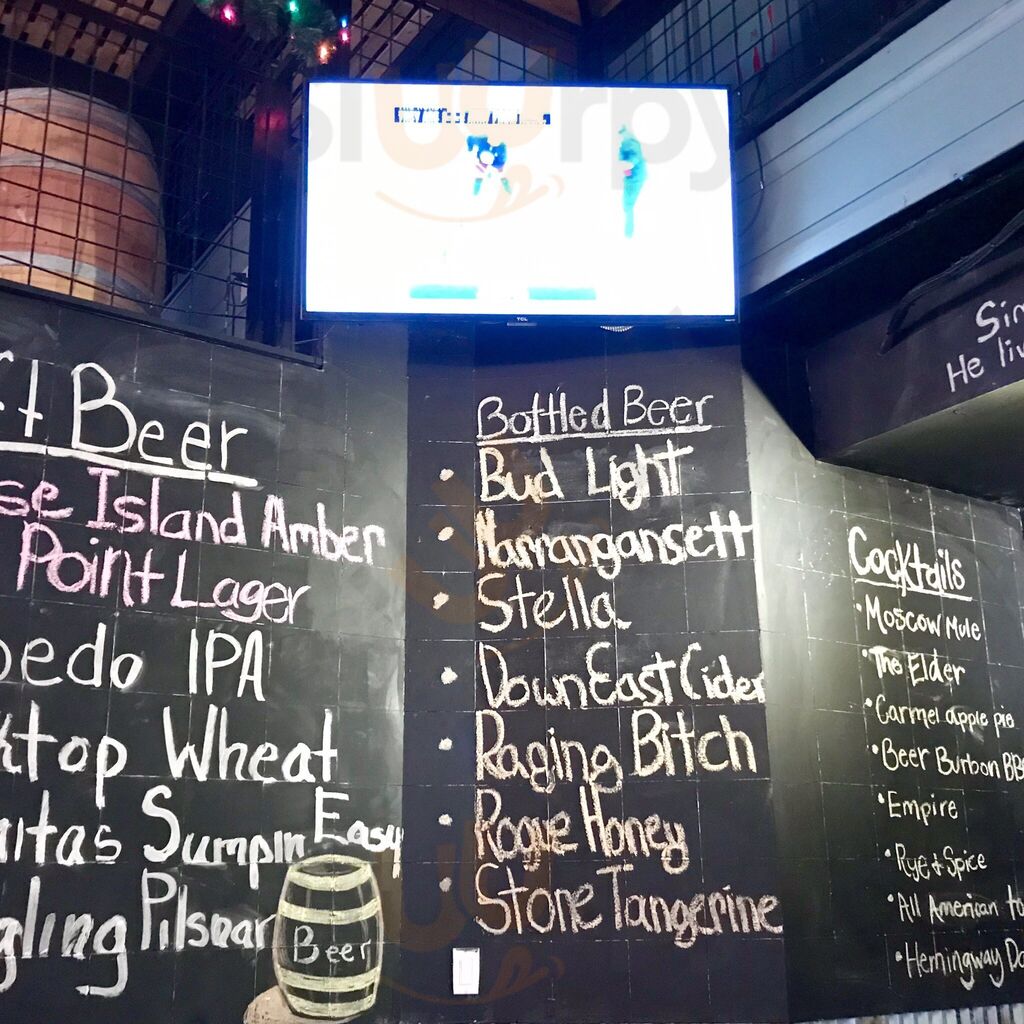 slurpy
TCL
Beer
se Island Amber
Point Lager
pedo IPA
ktop Wheat
nitas Sumpin Easy
gling Pilsnar
Beer
Bottled Beer
• Bud Light
• Narrangansett
• Stella
• DownEast Cider
• Raging Bitch
• Rogue Honey
• Stone Tangerine
Sin
He liv
Cocktails
• Moscow Mule
• The Elder
• Carmel apple pie
• Beer Burbon BB
• Empire
• Rye & Spice
• All American to
• Hemingway Da